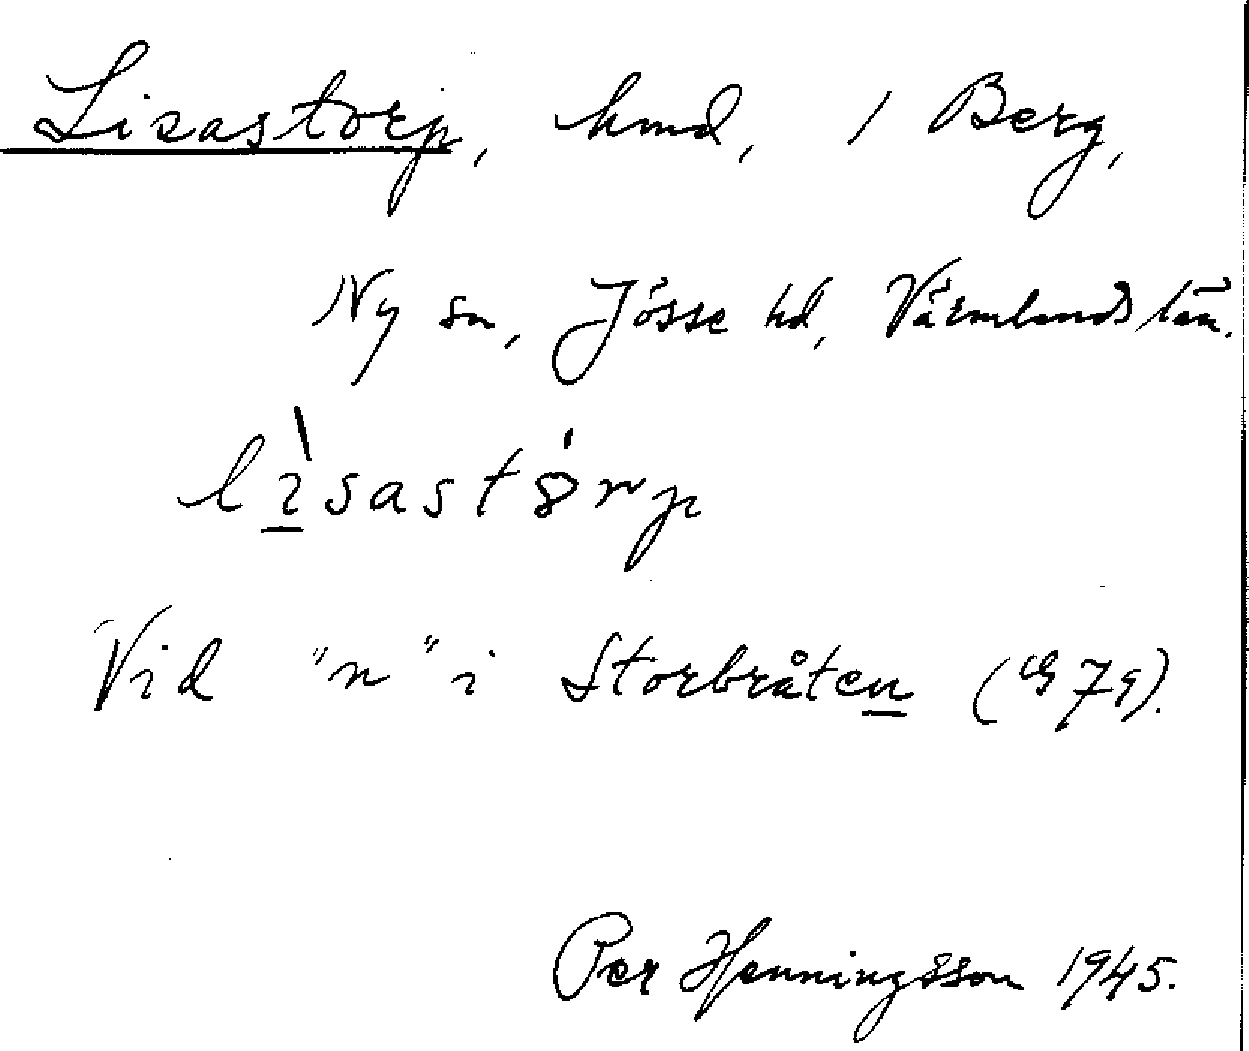 Lisastorp, hmd, / Berg,
Ny sn, Jösse hd, Värmlands län.
lìsastȯrp
Vid "n" i Storbråten (G 79).
Per Henningsson 1945.